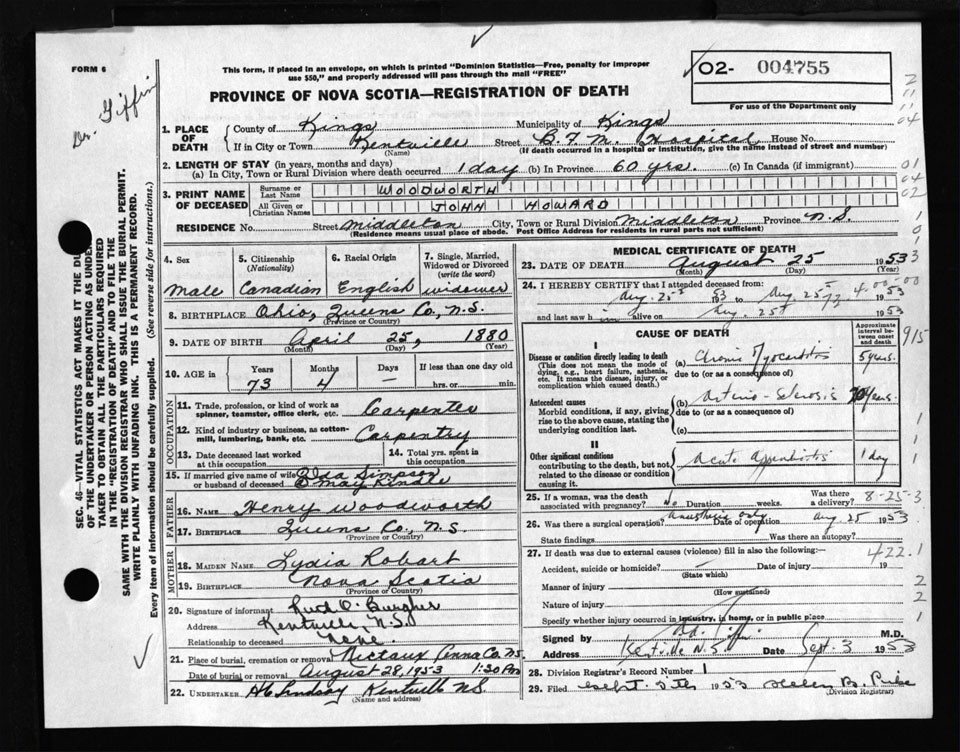 FORM 6
Dr. Giffin
This form, if placed in an envelope, on which is printed "Dominion Statistics—Free, penalty for improper
use $50," and properly addressed will pass through the mail "FREE"
PROVINCE OF NOVA SCOTIA—REGISTRATION OF DEATH
O2- 004755
For use of the Department only
1. PLACE OF DEATH { County of Kings Municipality of Kings
If in City or Town Kentville Street B. F. M. Hospital House No.
(Name) (If death occurred in a hospital or institution, give the name instead of street and number)
2. LENGTH OF STAY (in years, months and days)
(a) In City, Town or Rural Division where death occurred 1 day (b) In Province 60 yrs. (c) In Canada (if immigrant)
3. PRINT NAME OF DECEASED { Surname or Last Name WOODWORTH
All Given or Christian Names JOHN HOWARD
RESIDENCE No. Street Middleton City, Town or Rural Division Middleton Province N.S.
(Residence means usual place of abode. Post Office Address for residents in rural parts not sufficient)
4. Sex Male
5. Citizenship (Nationality) Canadian
6. Racial Origin English
7. Single, Married, Widowed or Divorced (write the word) widower
8. BIRTHPLACE Ohio, Queens Co., N.S.
(Province or Country)
9. DATE OF BIRTH April 25, 1880
(Month) (Day) (Year)
10. AGE in Years 73 Months 4 Days — If less than one day old hrs. or min.
OCCUPATION
11. Trade, profession, or kind of work as spinner, teamster, office clerk, etc. Carpenter
12. Kind of industry or business, as cotton-mill, lumbering, bank, etc. Carpentry
13. Date deceased last worked at this occupation
14. Total yrs. spent in this occupation
15. If married give name of wife or husband of deceased Simpson
May
FATHER
16. NAME Henry Woodworth
17. BIRTHPLACE Queens Co., N.S.
(Province or Country)
MOTHER
18. MAIDEN NAME Lydia Robart
19. BIRTHPLACE Nova Scotia
(Province or Country)
20. Signature of informant
Address Kentville N.S.
Relationship to deceased None.
21. Place of burial, cremation or removal Nictaux Anna Co. N.S.
Date of burial or removal August 28, 1953 1:30 PM
22. UNDERTAKER Lindsay Kentville N.S.
(Name and address)
MEDICAL CERTIFICATE OF DEATH
23. DATE OF DEATH August 25 1953
(Month) (Day) (Year)
24. I HEREBY CERTIFY that I attended deceased from
Aug. 25 53 to Aug 25 1953
and last saw him alive on Aug. 25 1953
CAUSE OF DEATH
Approximate interval between onset and death
I
Disease or condition directly leading to death
(This does not mean the mode of dying, e.g. heart failure, asthenia, etc. It means the disease, injury, or complication which caused death.)
(a) Chronic Myocarditis 5 years.
due to (or as a consequence of)
Antecedent causes
Morbid conditions, if any, giving rise to the above cause, stating the underlying condition last.
(b) Arterio-Sclerosis years.
due to (or as a consequence of)
(c)
II
Other significant conditions
contributing to the death, but not related to the disease or condition causing it.
Acute Appendicitis 1 day
25. If a woman, was the death associated with pregnancy? No Duration weeks. Was there a delivery?
8-25-3
26. Was there a surgical operation? Anesthesia only Date of operation Aug 25 1953
State findings Was there an autopsy?
27. If death was due to external causes (violence) fill in also the following:—
422.1
Accident, suicide or homicide? — Date of injury 19
(State which)
Manner of injury
(How sustained)
Nature of injury
Specify whether injury occurred in industry, in home, or in public place
Signed by Giffin M.D.
Address Kentville N.S. Date Sept. 3 1953
28. Division Registrar's Record Number 1
29. Filed Sept. 5th 1953 Helen B.
(Division Registrar)
SEC. 46—VITAL STATISTICS ACT MAKES IT THE DU
OF THE UNDERTAKER OR PERSON ACTING AS UNDER-
TAKER TO OBTAIN ALL THE PARTICULARS REQUIRED
IN THE "REGISTRATION OF DEATH" AND TO FILE THE
SAME WITH THE DIVISION REGISTRAR WHO SHALL ISSUE THE BURIAL PERMIT.
WRITE PLAINLY WITH UNFADING INK. THIS IS A PERMANENT RECORD.
Every item of information should be carefully supplied. (See reverse side for instructions.)
915